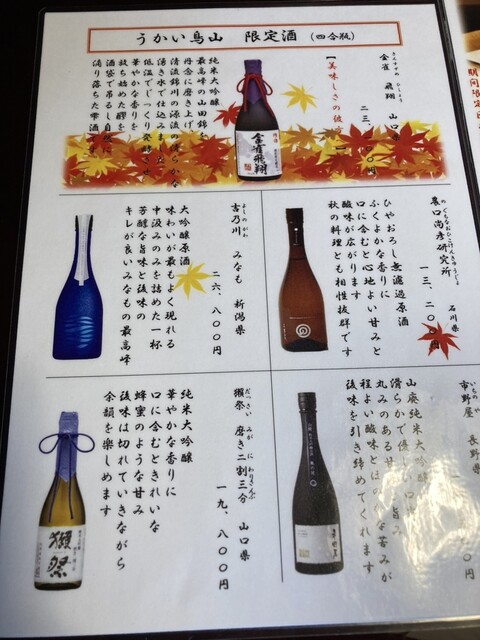 うかい鳥山　限定酒（四合瓶）
きんすずめ　ひしょう
金雀　飛翔　山口県
【美味しさの彼方
純米大吟醸
最高峰の山田錦を
丹念に磨き上げ、
清流錦川の源流の清らかな
湧き水で仕込みました
低温でじっくり発酵させ
華やかな香りを
放ち始めた醪を
酒袋で吊るし自然に
滴り落ちた雫酒
金雀飛翔
のぐちなおひこけんきゅうじょ
農口尚彦研究所
石川県
ひやおろし無濾過原酒
ふくよかな香りに
口に含むと心地よい甘みと
酸味が広がります
秋の料理とも相性抜群です
よしのがわ
吉乃川　みなも　新潟県
二六、八〇〇円
大吟醸原酒
味わいが最もよく現れる
中汲みのみを詰めた一杯
芳醇な旨味と後味の
キレが良いみなもの最高峰
いちのや
市野屋　長野県
山廃純米大吟醸
滑らかで優し
旨み
丸みのある甘
程よい酸味とほのかな苦みが
後味を引き締めてくれます
だっさい　みがき　にわりさんぶ
獺祭　磨き二割三分　山口県
一九、八〇〇円
純米大吟醸
華やかな香りに
口に含むときれいな
蜂蜜のような甘み
後味は切れていきながら
余韻を楽しめます
獺祭